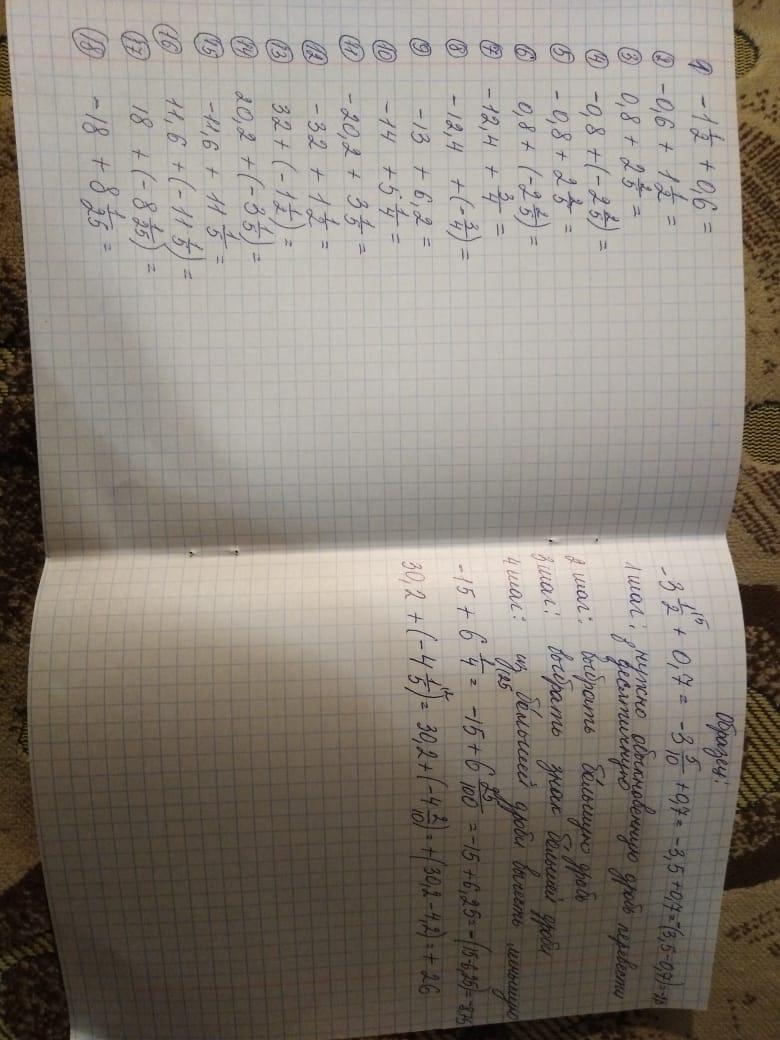 ① -1 1/2 + 0,6 =
② -0,6 + 1 1/2 =
③ 0,8 + 2 2/5 =
④ -0,8 + (-2 2/5) =
⑤ -0,8 + 2 2/5 =
⑥ 0,8 + (-2 2/5) =
⑦ -12,4 + 3/4 =
⑧ -12,4 + (-3/4) =
⑨ -13 + 6,2 =
⑩ -14 + 5 1/4 =
⑪ -20,2 + 3 1/5 =
⑫ -32 + 1 1/2 =
⑬ 32 + (-1 1/2) =
⑭ 20,2 + (-3 1/5) =
⑮ -11,6 + 11 1/5 =
⑯ 11,6 + (-11 1/5) =
⑰ 18 + (-8 1/25) =
⑱ -18 + 8 1/25 =
Образец:
-3 1/2 + 0,7 = -3 5/10 + 0,7 = -3,5 + 0,7 = -(3,5 - 0,7) =
1 шаг: нужно обыкновенную дробь перевести
в десятичную
2 шаг: выбрать большую дробь
3 шаг: выбрать знак большей дроби
4 шаг: из большей дроби вычесть меньшую
-15 + 6 1/4 = -15 + 6 25/100 = -15 + 6,25 = -(15 - 6,25) = -8,75
30,2 + (-4 1/5) = 30,2 + (-4 2/10) = +(30,2 - 4,2) = + 26